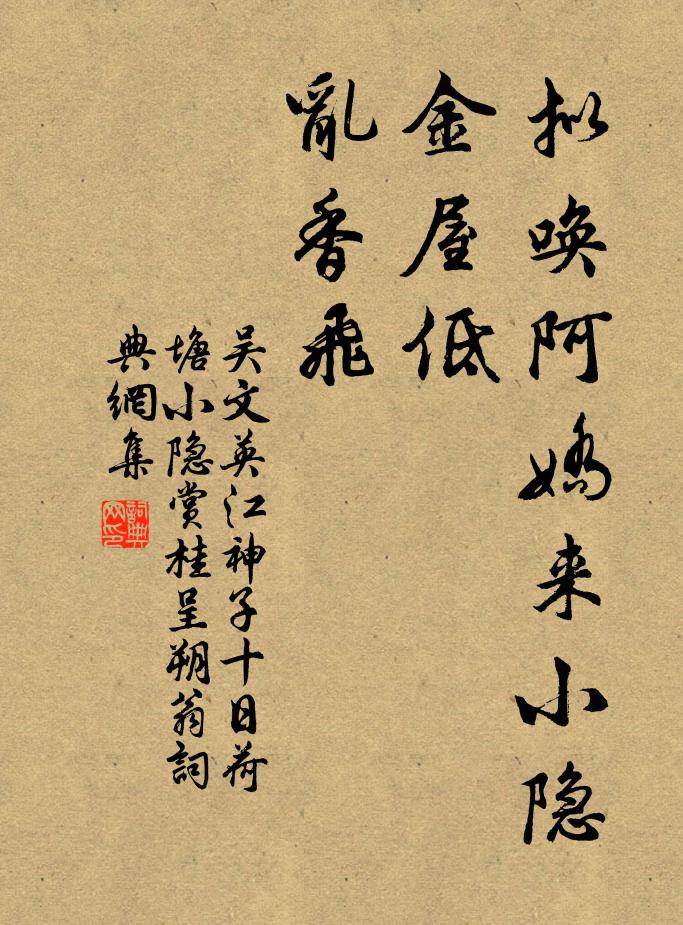 拟唤阿嬌来小隐
金屋低
亂香飛
吴文英江神子十日荷
塘小隐赏桂呈朔翁詞
典網集
詞典
网印